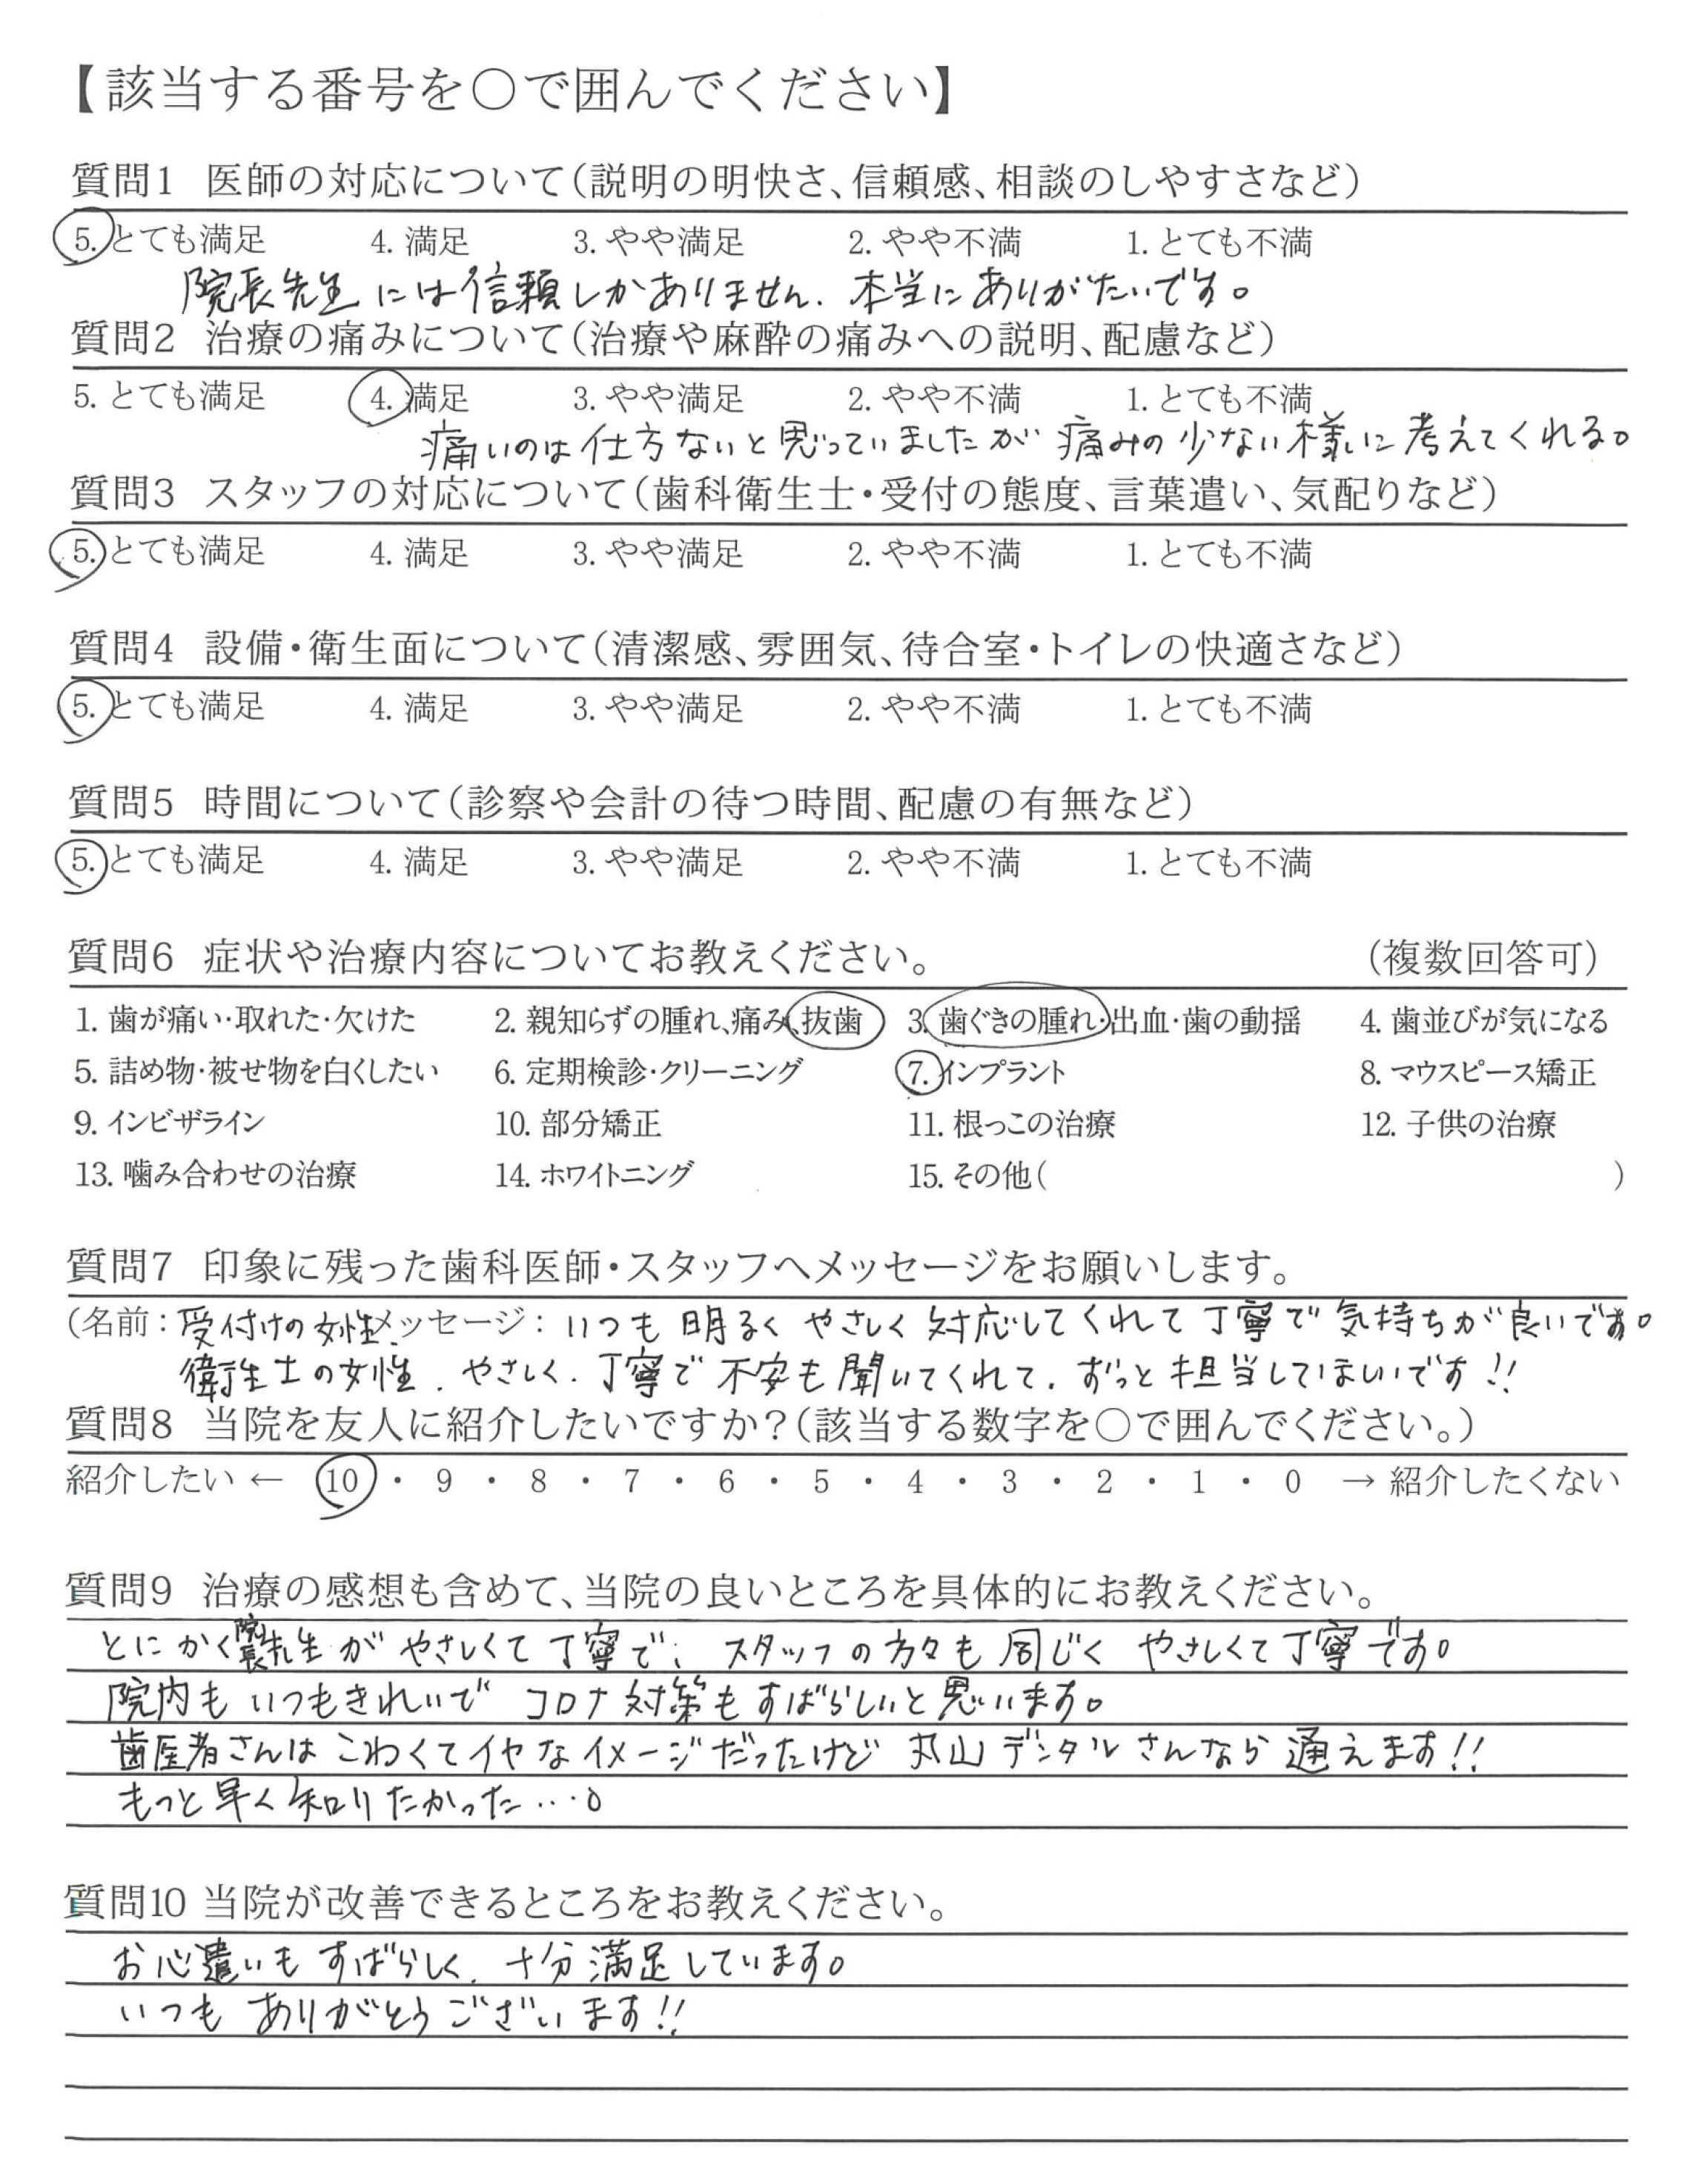 【該当する番号を○で囲んでください】
質問1 医師の対応について(説明の明快さ、信頼感、相談のしやすさなど)
5. とても満足 4. 満足 3. やや満足 2. やや不満 1. とても不満
院長先生には信頼しかありません。本当にありがたいです。
質問2 治療の痛みについて(治療や麻酔の痛みへの説明、配慮など)
5. とても満足 4. 満足 3. やや満足 2. やや不満 1. とても不満
痛いのは仕方ないと思っていましたが 痛みの少ない様に考えてくれる。
質問3 スタッフの対応について(歯科衛生士・受付の態度、言葉遣い、気配りなど)
5. とても満足 4. 満足 3. やや満足 2. やや不満 1. とても不満
質問4 設備・衛生面について(清潔感、雰囲気、待合室・トイレの快適さなど)
5. とても満足 4. 満足 3. やや満足 2. やや不満 1. とても不満
質問5 時間について(診察や会計の待つ時間、配慮の有無など)
5. とても満足 4. 満足 3. やや満足 2. やや不満 1. とても不満
質問6 症状や治療内容についてお教えください。 (複数回答可)
1. 歯が痛い・取れた・欠けた 2. 親知らずの腫れ、痛み、抜歯 3. 歯ぐきの腫れ・出血・歯の動揺 4. 歯並びが気になる
5. 詰め物・被せ物を白くしたい 6. 定期検診・クリーニング 7. インプラント 8. マウスピース矯正
9. インビザライン 10. 部分矯正 11. 根っこの治療 12. 子供の治療
13. 噛み合わせの治療 14. ホワイトニング 15. その他( )
質問7 印象に残った歯科医師・スタッフへメッセージをお願いします。
(名前: 受付けの女性 メッセージ: いつも 明るく やさしく 対応してくれて 丁寧で 気持ちが良いです。
衛生士の女性、やさしく、丁寧で 不安も聞いてくれて、ずっと担当してほしいです!!
質問8 当院を友人に紹介したいですか?(該当する数字を○で囲んでください。)
紹介したい ← 10 ・ 9 ・ 8 ・ 7 ・ 6 ・ 5 ・ 4 ・ 3 ・ 2 ・ 1 ・ 0 → 紹介したくない
質問9 治療の感想も含めて、当院の良いところを具体的にお教えください。
とにかく院長先生が やさしくて 丁寧で、スタッフの方々も 同じく やさしくて丁寧です。
院内も いつもきれいで コロナ対策もすばらしいと思います。
歯医者さんは こわくてイヤなイメージだったけど 丸山デンタルさんなら 通えます!!
もっと早く知りたかった…。
質問10 当院が改善できるところをお教えください。
お心遣いも すばらしく、十分満足しています。
いつも ありがとうございます!!